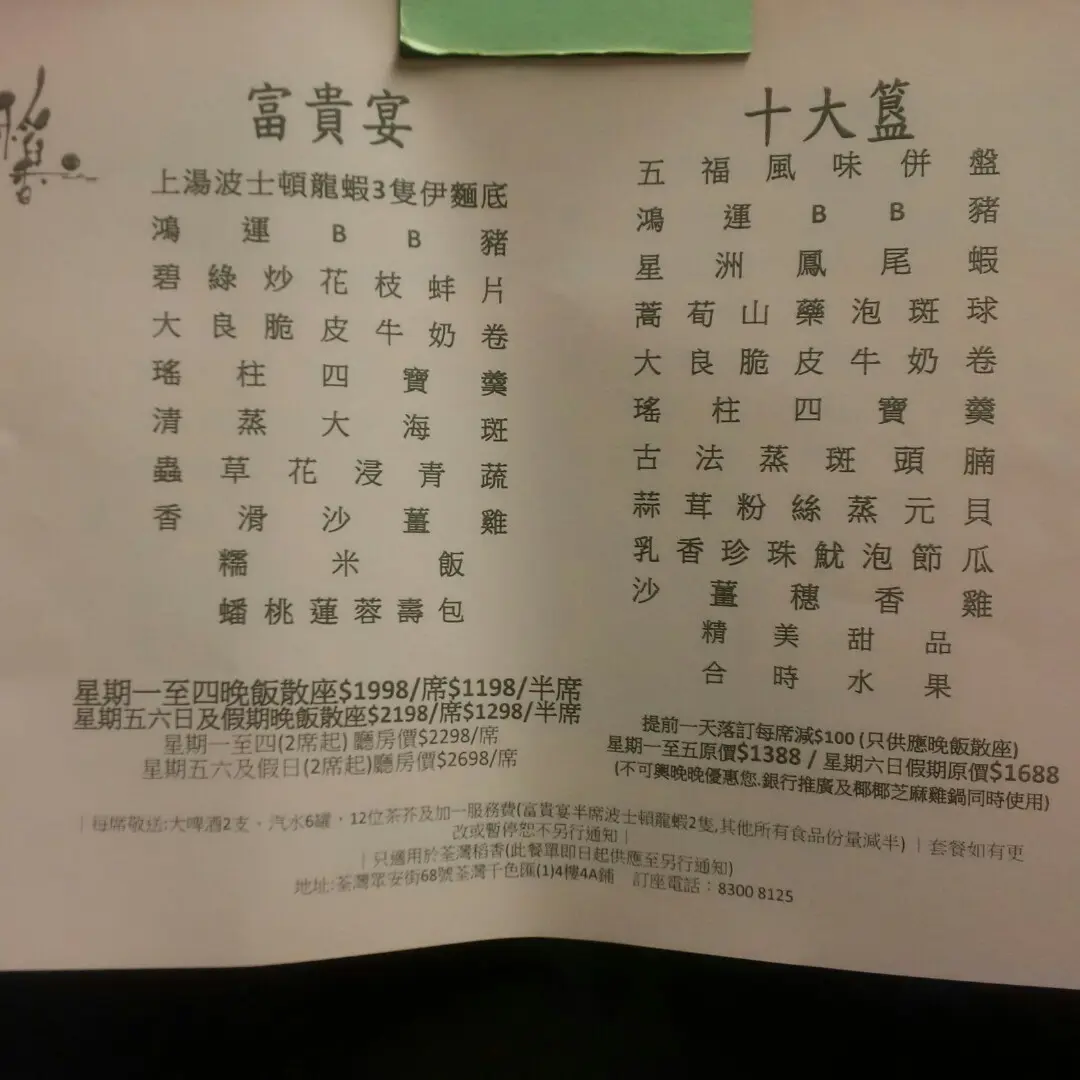 富貴宴
上湯波士頓龍蝦3隻伊麵底
鴻運BB豬
碧綠炒花枝蚌片
大良脆皮牛奶卷
瑤柱四寶羹
清蒸大海斑
蟲草花浸青蔬
香滑沙薑雞
糯米飯
蟠桃蓮蓉壽包
星期一至四晚飯散座$1998/席$1198/半席
星期五六日及假期晚飯散座$2198/席$1298/半席
星期一至四(2席起) 廳房價$2298/席
星期五六及假日(2席起)廳房價$2698/席
十大簋
五福風味併盤
鴻運BB豬
星洲鳳尾蝦
蒿荀山藥泡斑球
大良脆皮牛奶卷
瑤柱四寶羹
古法蒸斑頭腩
蒜茸粉絲蒸元貝
乳香珍珠魷泡節瓜
沙薑穗香雞
精美甜品
合時水果
提前一天落訂每席減$100 (只供應晚飯散座)
星期一至五原價$1388 / 星期六日假期原價$1688
(不可與晚晚優惠您.銀行推廣及椰椰芝麻雞鍋同時使用)
| 每席敬送:大啤酒2支、汽水6罐、12位茶芥及加一服務費(富貴宴半席波士頓龍蝦2隻,其他所有食品份量減半) | 套餐如有更
改或暫停恕不另行通知 |
| 只適用於荃灣稻香(此餐單即日起供應至另行通知)
地址:荃灣眾安街68號荃灣千色匯(1)4樓4A鋪 訂座電話：8300 8125